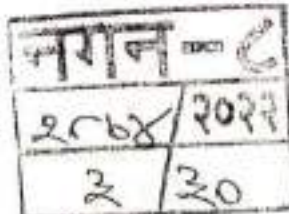 नगन - ८
२८७४/२०२२
३/३०